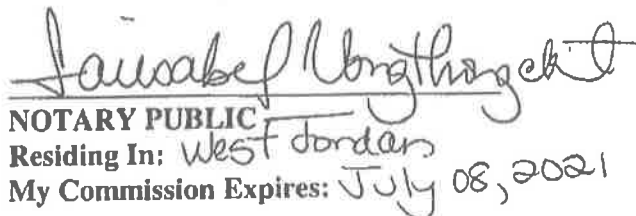 NOTARY PUBLIC
Residing In: West Jordan
My Commission Expires: July 08, 2021